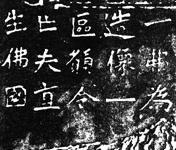 一為
造像一
區願令
亡夫直
生佛國